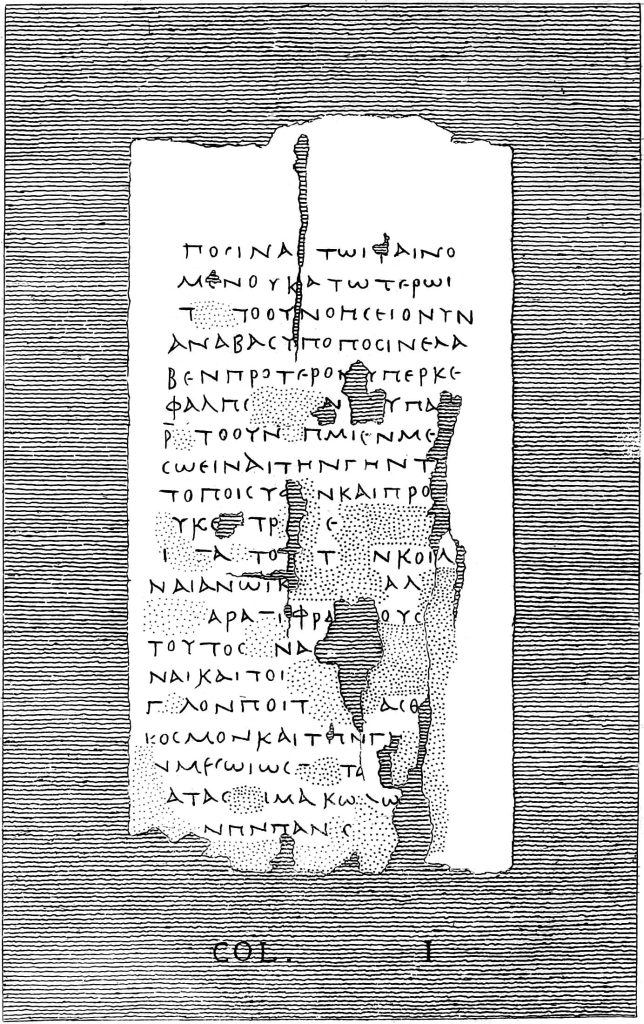 ΠΟΣΙΝΑ ΤΩΙ ΦΑΙΝΟ
ΜΕΝΟΥ ΚΑΤΩΤΕΡΩΙ
Τ ΤΟΟΥΝΟΗϹΕΙΟΝΥΝ
ΑΝΑΒΑϹΥΠΟΠΟϹΙΝΕΛΑ
ΒΕΝΠΡΟΤΕΡΟΝΥΠΕΡΚΕ
ΦΑΛΠϹ ΑΝ ΥΠΑ
Ρ ΤΟΟΥΝ ΠΜΙΕΝΜΕ
ϹΩΕΙΝΑΙΤΗΝΓΗΝΤ
ΤΟΠΟΙϹΥΦ ΝΚΑΙΠΡΟ
ΥΚΕ ΤΡ Ε
Ι ΤΑ ΤΟ Τ ΝΚΟΙΛ
ΝΑΙΑΝΩΙΚ ΑΛ
ΑΡΑ ΤΙΦΡΑ ΟΥϹ
ΤΟΥΤΟϹ ΝΑ
ΝΑΙΚΑΙΤΟΙ
Γ ΛΟΝΠΟΙΤ ΑϹΘ
ΚΟϹΜΟΝΚΑΙΤΠΝΓΗ
ΝΜΕϹΩΙΩϹ ΤΑ
ΑΤΑϹ ΙΜΑΚΩ ΛΩ
ΝΠΝΠΑΝ Ϲ
COL. I